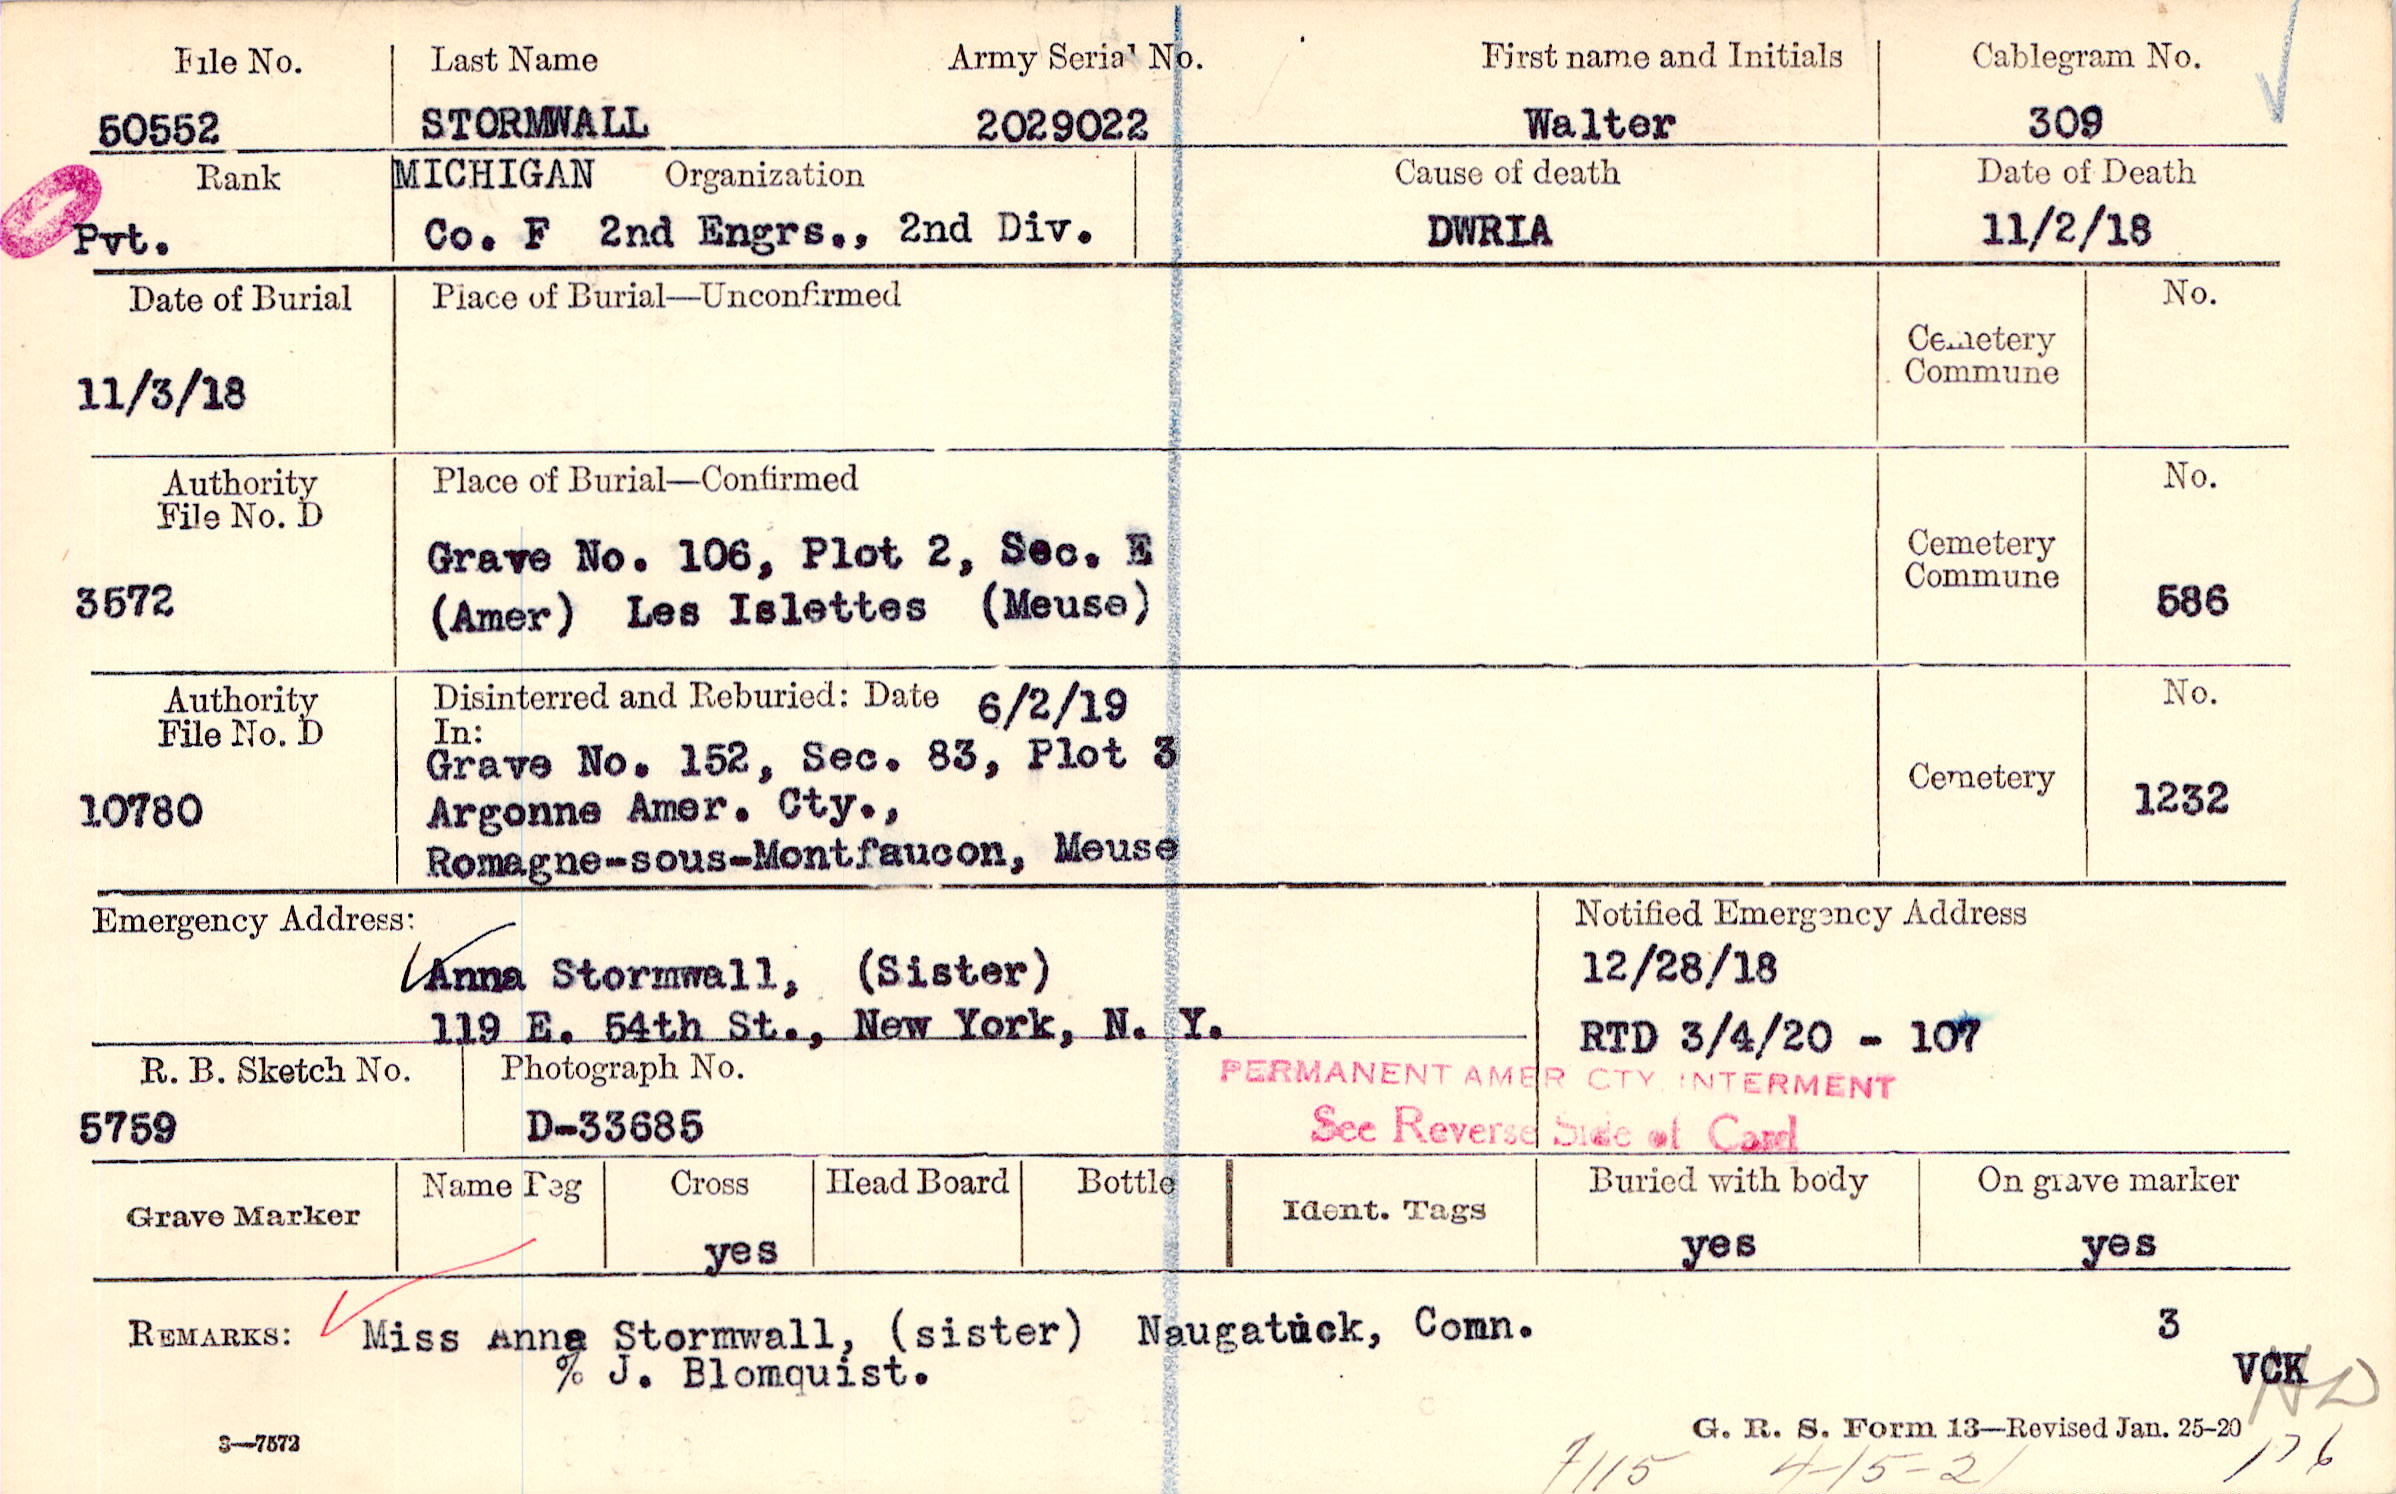 File No. Last Name Army Serial No. First name and Initials Cablegram No.
50552 STORMWALL 2029022 Walter 309
Rank MICHIGAN Organization Cause of death Date of Death
Pvt. Co. F 2nd Engrs., 2nd Div. DWRIA 11/2/18
Date of Burial Place of Burial—Unconfirmed No.
Cemetery
Commune
11/3/18
Authority Place of Burial—Confirmed No.
File No. D
Grave No. 106, Plot 2, Sec. E Cemetery
Commune
3572 (Amer) Les Islettes (Meuse) 586
Authority Disinterred and Reburied: Date 6/2/19 No.
File No. D In:
Grave No. 152, Sec. 83, Plot 3 Cemetery
10780 Argonne Amer. Cty., 1232
Romagne-sous-Montfaucon, Meuse
Emergency Address: Notified Emergency Address
Anna Stormwall, (Sister) 12/28/18
119 E. 54th St., New York, N. Y. RTD 3/4/20 - 107
R. B. Sketch No. Photograph No. PERMANENT AMER CTY. INTERMENT
5759 D-33685 See Reverse Side of Card
Grave Marker Name Peg Cross Head Board Bottle Ident. Tags Buried with body On grave marker
yes yes yes
REMARKS: Miss Anna Stormwall, (sister) Naugatuck, Comn. 3
% J. Blomquist. VCK
3—7572 G. R. S. Form 13—Revised Jan. 25-20
4-15-21 176